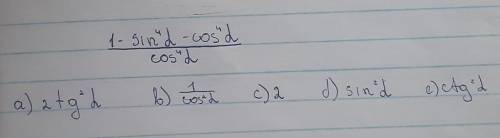 1 - sin⁴α - cos⁴α
cos⁴α
a) 2 tg²α b) 1/cos²α c) 2 d) sin²α e) ctg²α